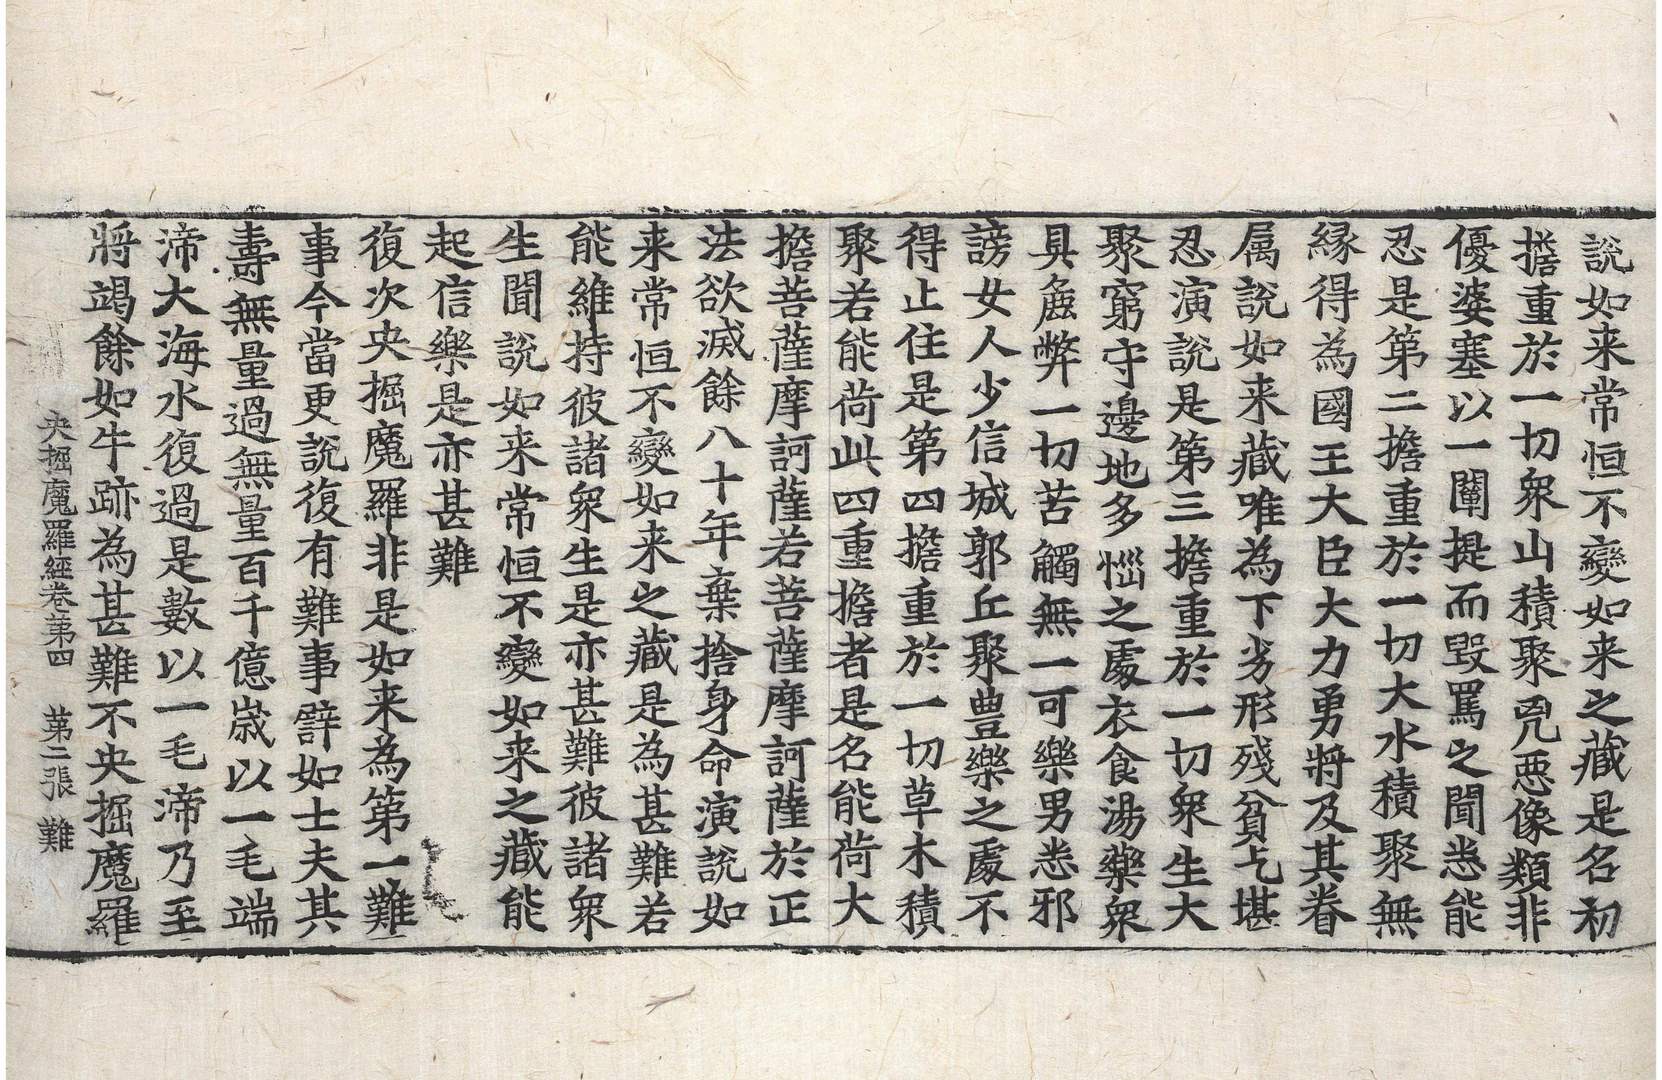 說如来常恒不變如来之藏是名初
擔重於一切衆山積聚兇惡像類非
優婆塞以一闡提而毀罵之聞悉能
忍是第二擔重於一切大水積聚無
縁得為國王大臣大力勇將及其眷
属說如来藏唯為下劣形殘貧乞堪
忍演說是第三擔重於一切衆生大
聚窮守邊地多惱之處衣食湯藥衆
具麁弊一切苦觸無一可樂男悉邪
謗女人少信城郭丘聚豊樂之處不
得止住是第四擔重於一切草木積
聚若能荷此四重擔者是名能荷大
擔菩薩摩訶薩若菩薩摩訶薩於正
法欲滅餘八十年棄捨身命演說如
来常恒不變如来之藏是為甚難若
能維持彼諸衆生是亦甚難彼諸衆
生聞說如来常恒不變如来之藏能
起信樂是亦甚難
復次央掘魔羅非是如来為第一難
事今當更說復有難事譬如士夫其
壽無量過無量百千億歲以一毛端
渧大海水復過是數以一毛渧乃至
將竭餘如牛跡為甚難不央掘魔羅
央掘魔羅經卷第四 第二張 難